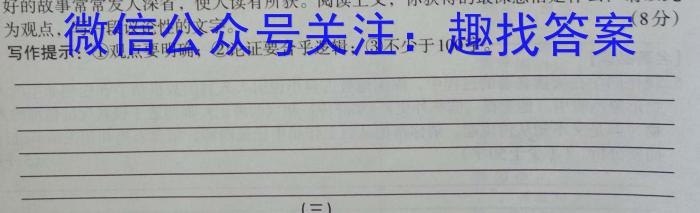 好的故事常常发人深省，使人读有所获。阅读上文，你获得的最深感悟是什么？
为观点，写一段议论性的文字。(8分)
微信公众号关注：趣找答案
写作提示：①观点要明确；②论证要合乎逻辑；③不少于100字。
(三)